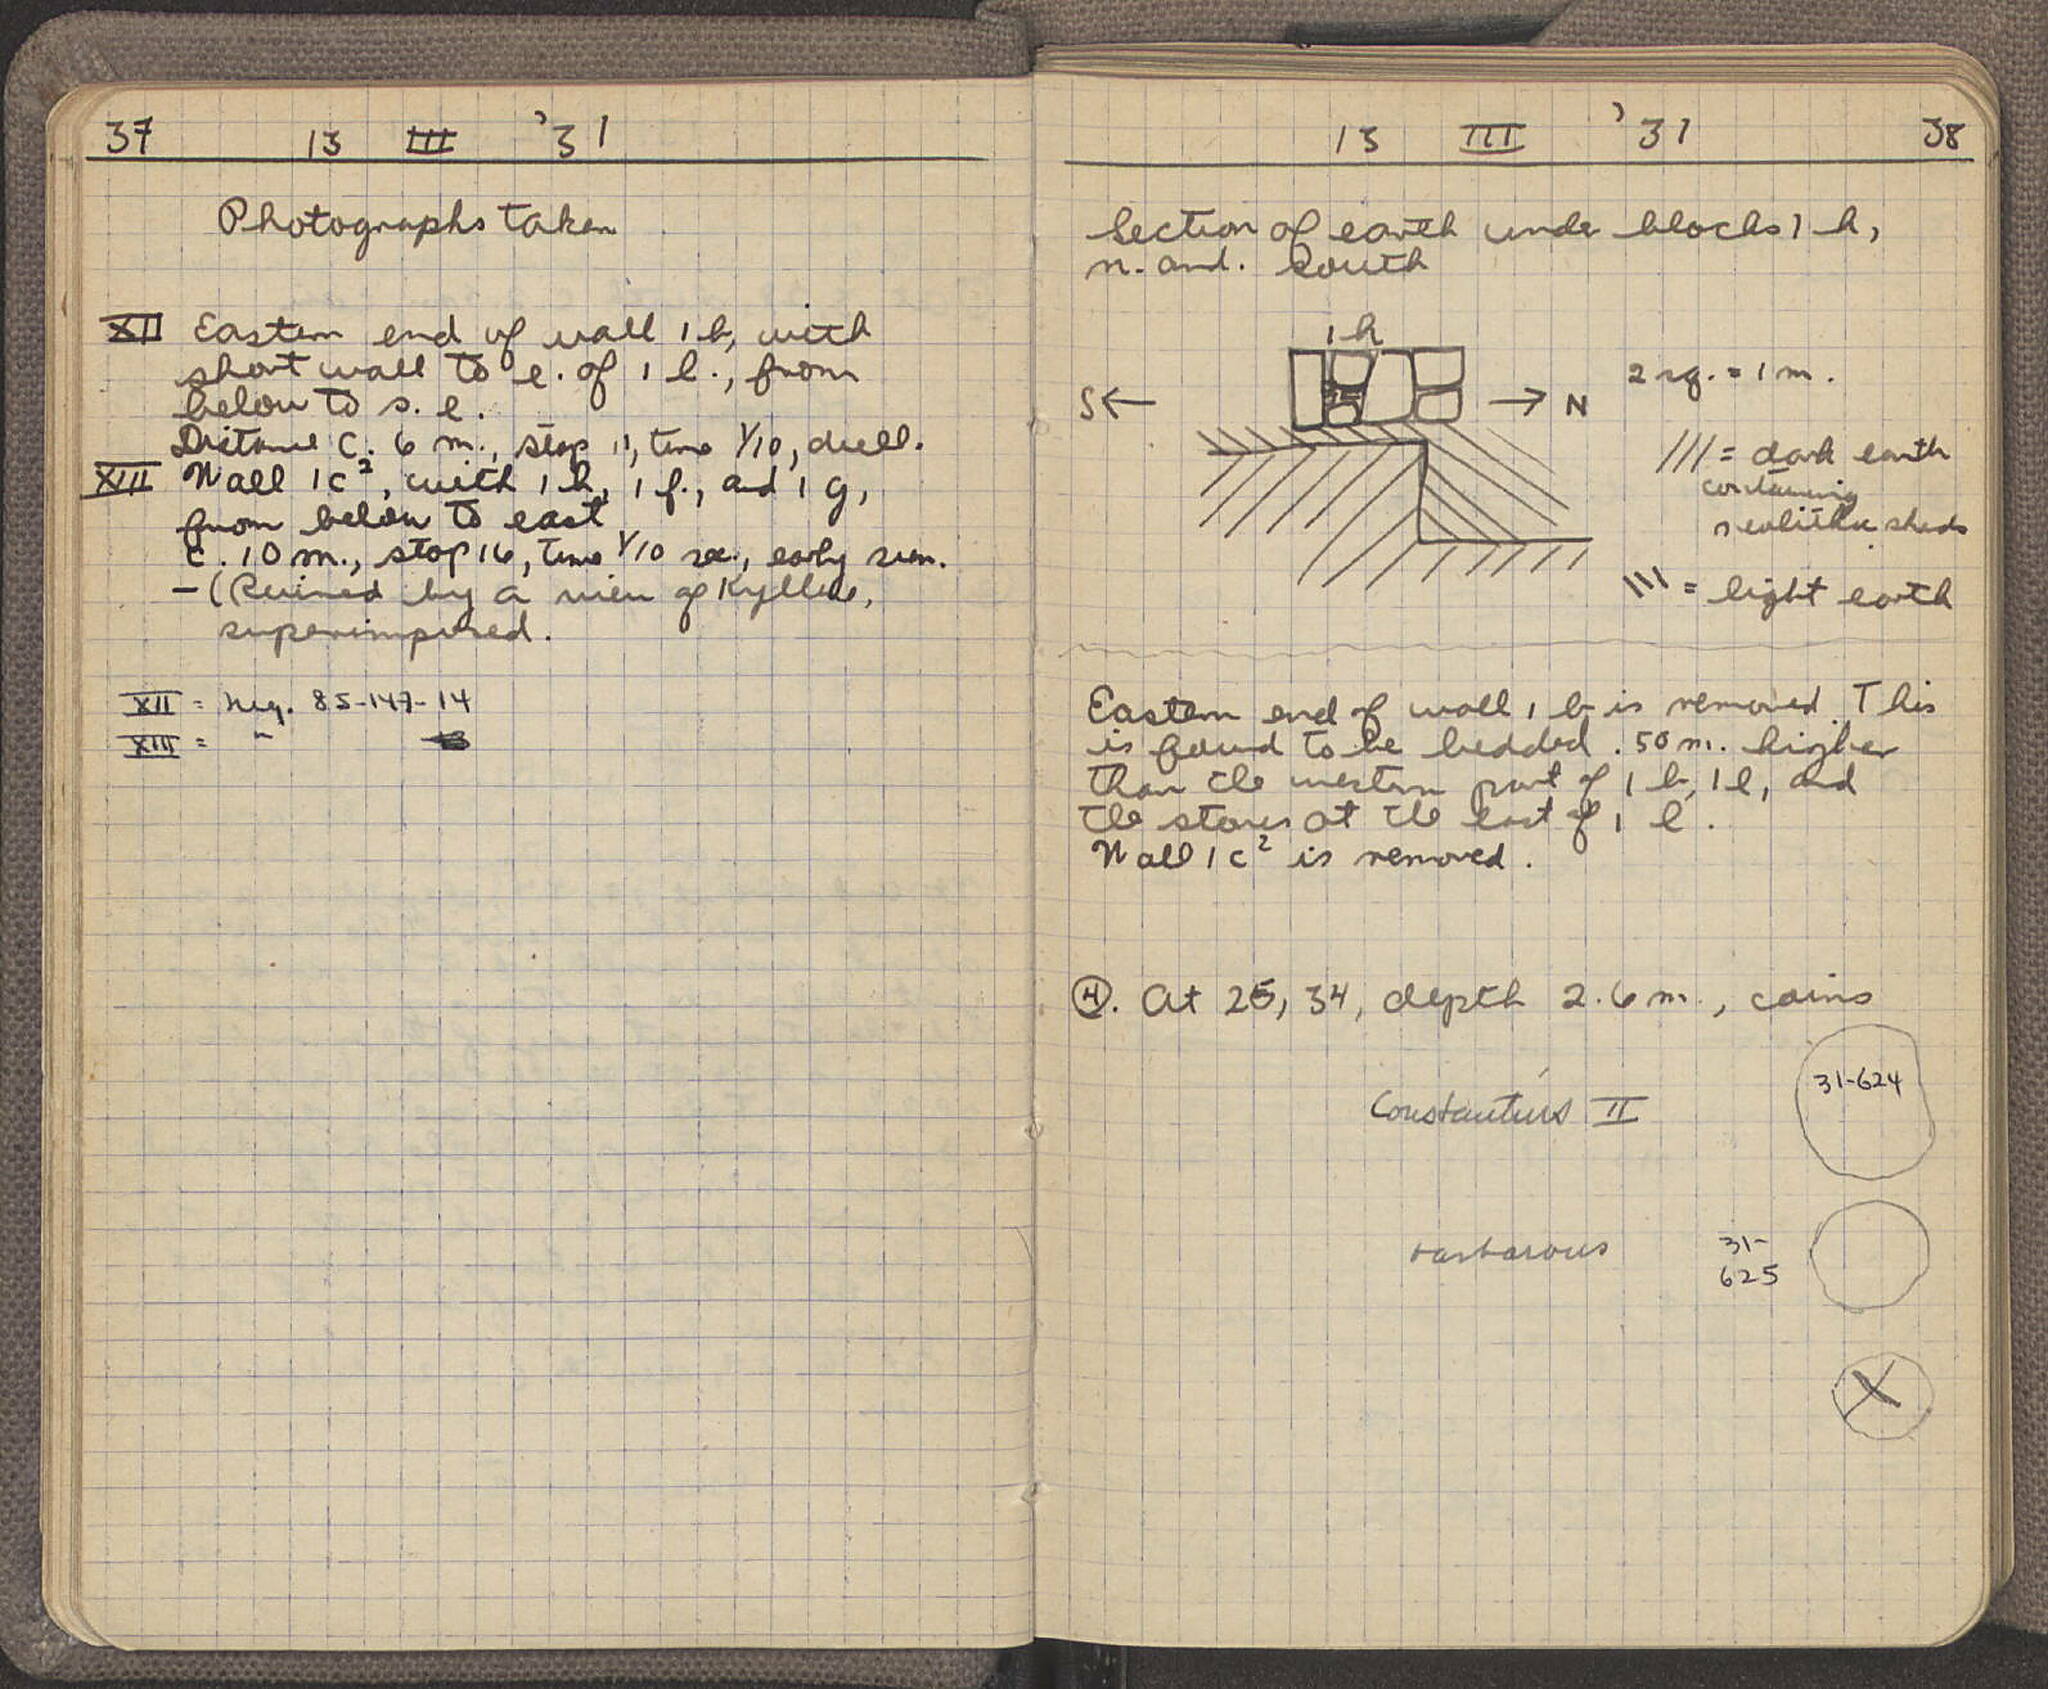 37 13 III '31
Photographs taken
XII Eastern end of wall 1 b, with
short wall to e. of 1 l., from
below to s. e.
Distance c. 6 m., stop 11, time 1/10, dull.
XIII Wall 1 c², with 1 h, 1 f., and 1 g,
from below to east
c. 10 m., stop 16, time 1/10 sec., early sun.
- (Ruined by a view of Kyllene,
superimposed.
XII = Neg. 85-147-14
XIII = "
13 III '31 38
Section of earth under blocks 1 h,
n. and. south
1 h
S ← → N
2 sq. = 1 m.
/// = dark earth
containing
neolithic sherds
\\\ = light earth
Eastern end of wall 1 b is removed. This
is found to be bedded .50 m. higher
than the western part of 1 b, 1 l, and
the stones at the east of 1 l.
Wall 1 c² is removed.
4. At 25, 34, depth 2.6 m., coins
31-624
Constantius II
barbarous 31-
625
X